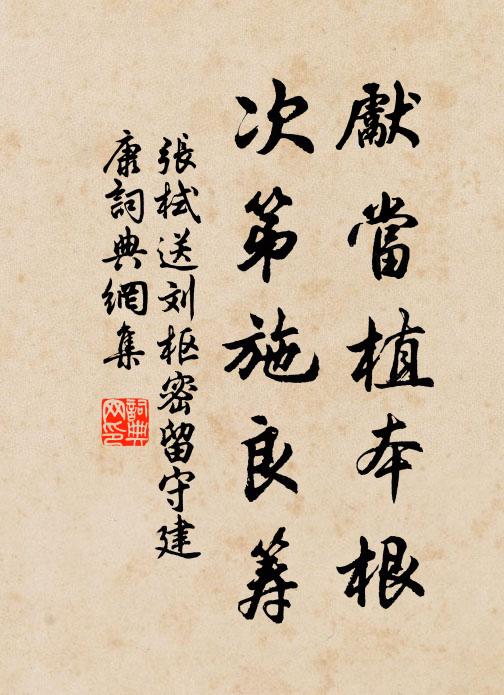 獻當植本根
次第施良筹
張栻送刘枢密留守建
康詞典網集
詞典
网印